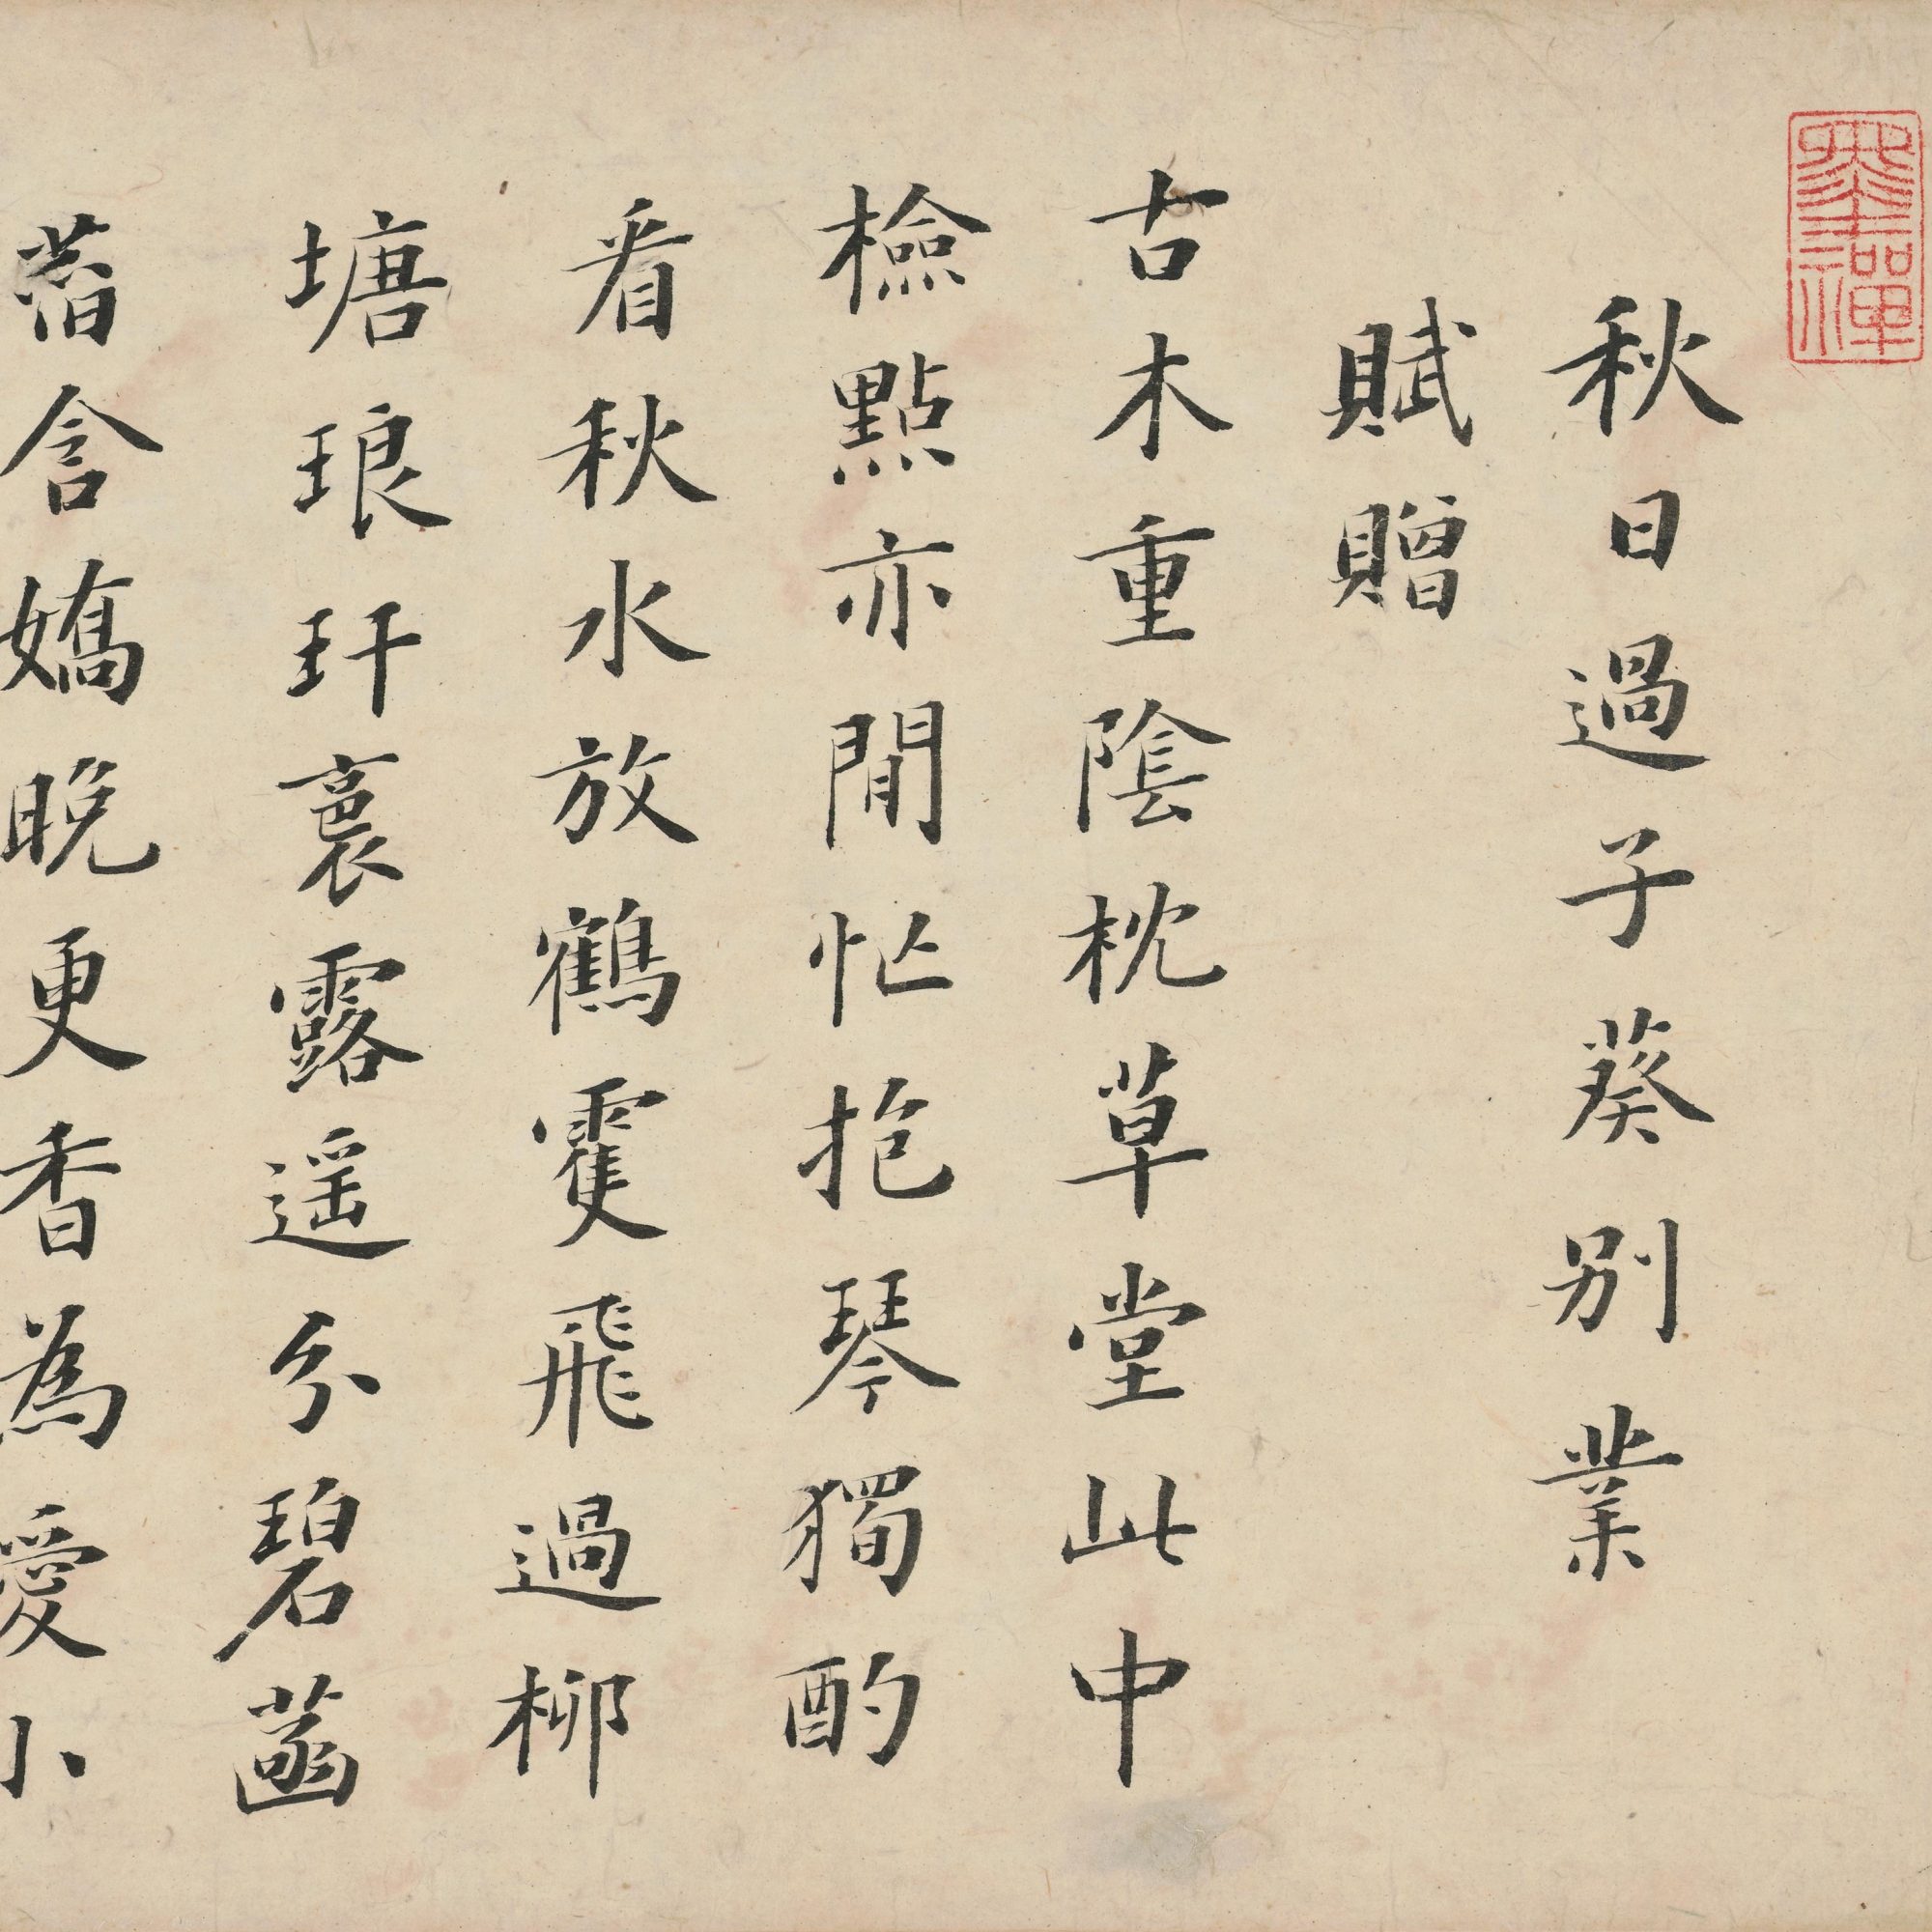 墨禪
秋日過子葵別業
賦贈
古木重陰枕草堂此中
檢點亦閒忙抱琴獨酌
看秋水放鶴雙飛過柳
塘琅玕裛露遥分碧菡
萏含嬌晚更香為愛小